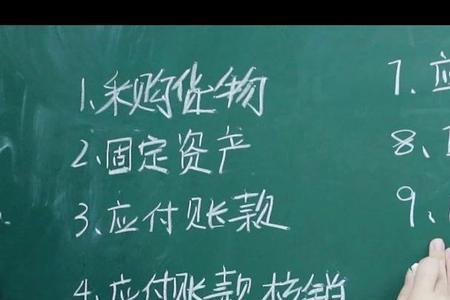 1、采购货物
2、固定资产
3、应付账款
4、应付账款核销
7、应
8、
9、